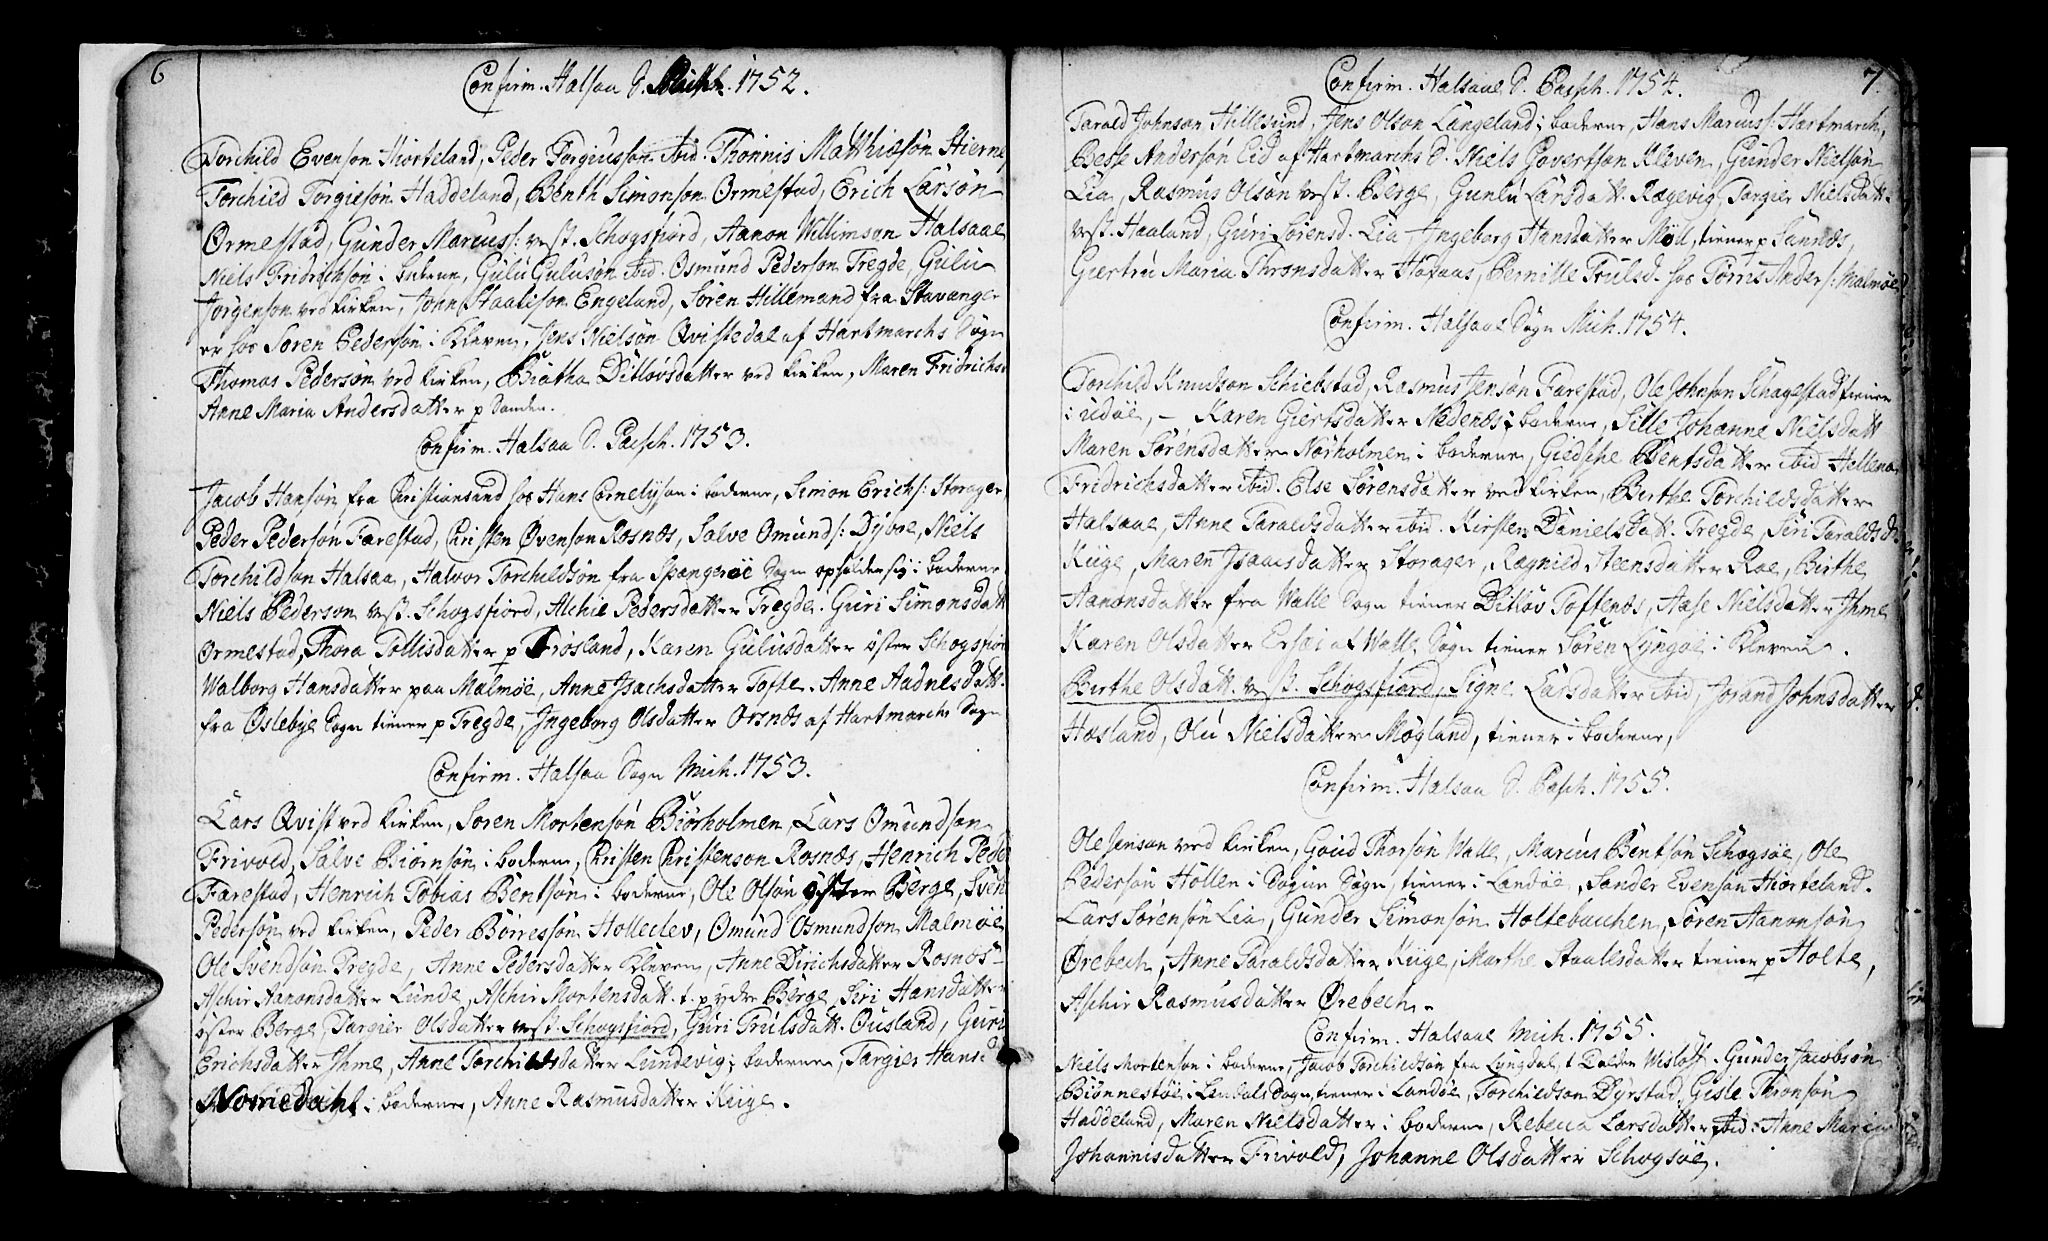 6
Confirm. Halsaa S. Mich. 1752.
Torchild Evenson Hiorteland, Peder Torgiusson ibid. Thonnis Matthiæsøn Hierne
Torchild Torgiesøn Haddeland, Benth Simonsøn Ormestad, Erich Larsøn
Ormestad, Gunder Marcus s: vest. Schogsfiord, Aanon Willimson Halsaae
Niels Fridrichsøn i boderne, Gulu Gulusøn ibid. Osmund Pederson Tregde, Gulu
Jørgenson ved kirken, John Staalison Engeland, Søren Hillemand fra Stavanger
er hos Søren Pedersøn i Kleven, Jens Nielsøn Qvistedal af Hartmarchs Sogn
Thomas Pedersøn ved kirken, Biatha Ditløvsdatter ved kirken, Maren Fridrichs
Anne Maria Andersdatter p Sanden.
Confirm. Halsaa S. Pasch. 1753.
Jacob Hansøn fra Christiansand hos Hans Cornelijson i boderne, Simon Erich s: Storager
Peder Pedersøn Farestad, Christen Øvenson Rosnæs, Salve Omund s: Dybve, Niels
Torchildson Halsaa, Halvor Torchildsøn fra Spangerøe Sogn opholder sig i boderne
Niels Pederson vest. Schogsfiord, Aschie Pedersdatter Tregde. Guri Simonsdatt
Ormestad, Thora Tollisdatter p Frøsland, Karen Gulusdatter øster Schogsfior
Walborg Hansdatter paa Malmøe, Anne Isachsdatter Tofte. Anne Aadnesdatt.
fra Øslebye Sogn tiener p Tregde, Ingeborg Olsdatter Orsnæs af Hartmarchs Sogn
Confirm. Halsaa Sogn Mich. 1753.
Lars Qvist ved kirken, Soren Mortensøn Biørholmen, Lars Omundson
Frivold, Salve Biørnsøn i boderne, Christen Christenson Rosnæs, Henrich Pede
Farestad, Henrich Tobias Bentsøn i boderne, Ole Olsøn øster Berge, Sven
Pedersøn ved kirken, Peder Børresson Holleclev, Omund Osmundson Malmøe
Ole Svendsøn Tregde, Anne Pedersdatter Kleven, Anne Dirichsdatter Rosnøs
Aschie Aanonsdatter Lunde, Aschie Mortensdatt. t. p ydre Berge, Siri Hansdatter
øster Berge, Targier Olsdatter vest. Schogsfiord, Guri Trulsdatt. Ousland, Guri
Erichsdatter Ihme, Anne Torchildsdatter Lundevig i boderne, Targier Hansd
Nomedahl i boderne, Anne Rasmusdatter Kiige.
7.
Confirm. Halsaae S. Pasch. 1754.
Tarald Johnson Hillesund, Jens Olson Langeland i boderne, Hans Marcus s: Hartmarch,
Besse Andersøn Eid af Hartmarchs S. Niels Govertson Kleven, Gunder Nielsøn
Lia, Rasmus Olsøn vest. Berge, Gunlu Larsdatt. Rægevig, Targier Nielsdatt.
vest. Haaland, Guri Sørensd. Lia, Ingeborg Hansdatter Møll, tiener p Sannæs,
Giertru Maria Thronsdatter Hasaas, Pernille Trulsd. hos Tørris Anders: Malmøe
Confirm. Halsaae Sogn Mich. 1754.
Torchild Knudson Schiebstad, Rasmus Jensøn Farestad, Ole Johnson Schagestad tiener
i udøe, - Karen Giertsdatter Nedenæs i boderne, Sille Johanne Nielsdatt
Maren Sørensdatter Nørholmen i boderne, Giedsche Bentsdatter ibid Hellena
Fridrichsdatter ibid. Else Sørensdatter ved kirken, Berthe Torchildsdatter
Halsaae, Anne Taraldsdatter ibid. Kirsten Danielsdatt. Tregde, Siri Taraldsd.
Kiige, Maren Isaacsdatter Storager, Rægnild Steensdatter Roe, Birthe
Aanonsdatter fra Walle Sogn tiener Ditløv Toftenæs, Aase Nielsdatter Ihme
Karen Olsdatter af Walle Sogn tiener Søren Lyngøe i Kleven.
Birthe Olsdatt. vest. Schogsfiord, Signe Larsdatter ibid, Jorand Johnsdatter
Hæsland, Olu Nielsdatter Møgland, tiener i boderne,
Confirm. Halsaa S. Pasch. 1755.
Ole Jenson ved kirken, Goud Thorsøn Walle, Marcus Bentsøn Schogsøe, Ole
Pedersøn Hollen i Sogne Sogn, tiener i Landøe, Sander Evensøn Hiorteland.
Lars Sørensøn Lia, Gunder Simonsøn Holtebacchen, Søren Aanonsøn
Ørebech, Anne Taraldsdatter Kiige, Marthe Staalesdatter tiener p Holte,
Aschie Rasmusdatter Ørebech.
Confirm. Halsaae Mich. 1755.
Niels Mortenson i boderne, Jacob Torchildsøn fra Lyngdal, t. Gunder Jacobsøn
Biønnestøe i Lendals Sogn, tiener i Landøe, Torchildson Dyrstad, Gisle Thronsøn
Haddeland, Maren Nielsdatter i boderne, Rebecca Larsdatter ibid: Anne Maria
Johannisdatter Frivold, Johanne Olsdatter Schogsøe.